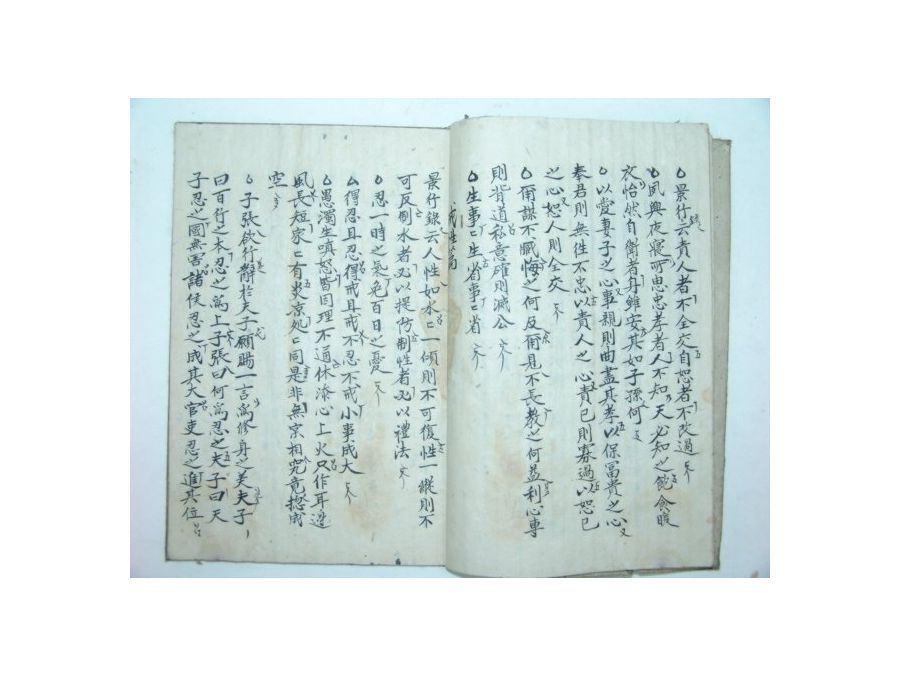 景行云責人者不全交自恕者不改過
夙興夜寢所思忠孝者人不知天必知之飽食暖
衣怡然自衛者身雖安其如子孫何
以愛妻子之心事親則曲盡其孝以保富貴之心
奉君則無徃不忠以責人之心責已則寡過以恕已
之心恕人則全交
爾謀不臧悔之何及爾見不長教之何益利心專
則背道私意確則滅公
生事〻生省事〻省
戒性篇
景行錄云人性如水〻一傾則不可復性一縱則不
可反制水者必以提防制性者必以禮法
忍一時之氣免百日之憂
得忍且忍得戒且戒不忍不戒小事成大
愚濁生嗔怒皆因理不通休添心上火只作耳邊
風長短家〻有炎凉処〻同是非無宗相究竟摠成
空
子張欲行辭於夫子願賜一言爲修身之美夫子
曰百行之本忍之爲上子張曰何爲忍之夫子曰天
子忍之國無害諸侯忍之成其大官吏忍之進其位